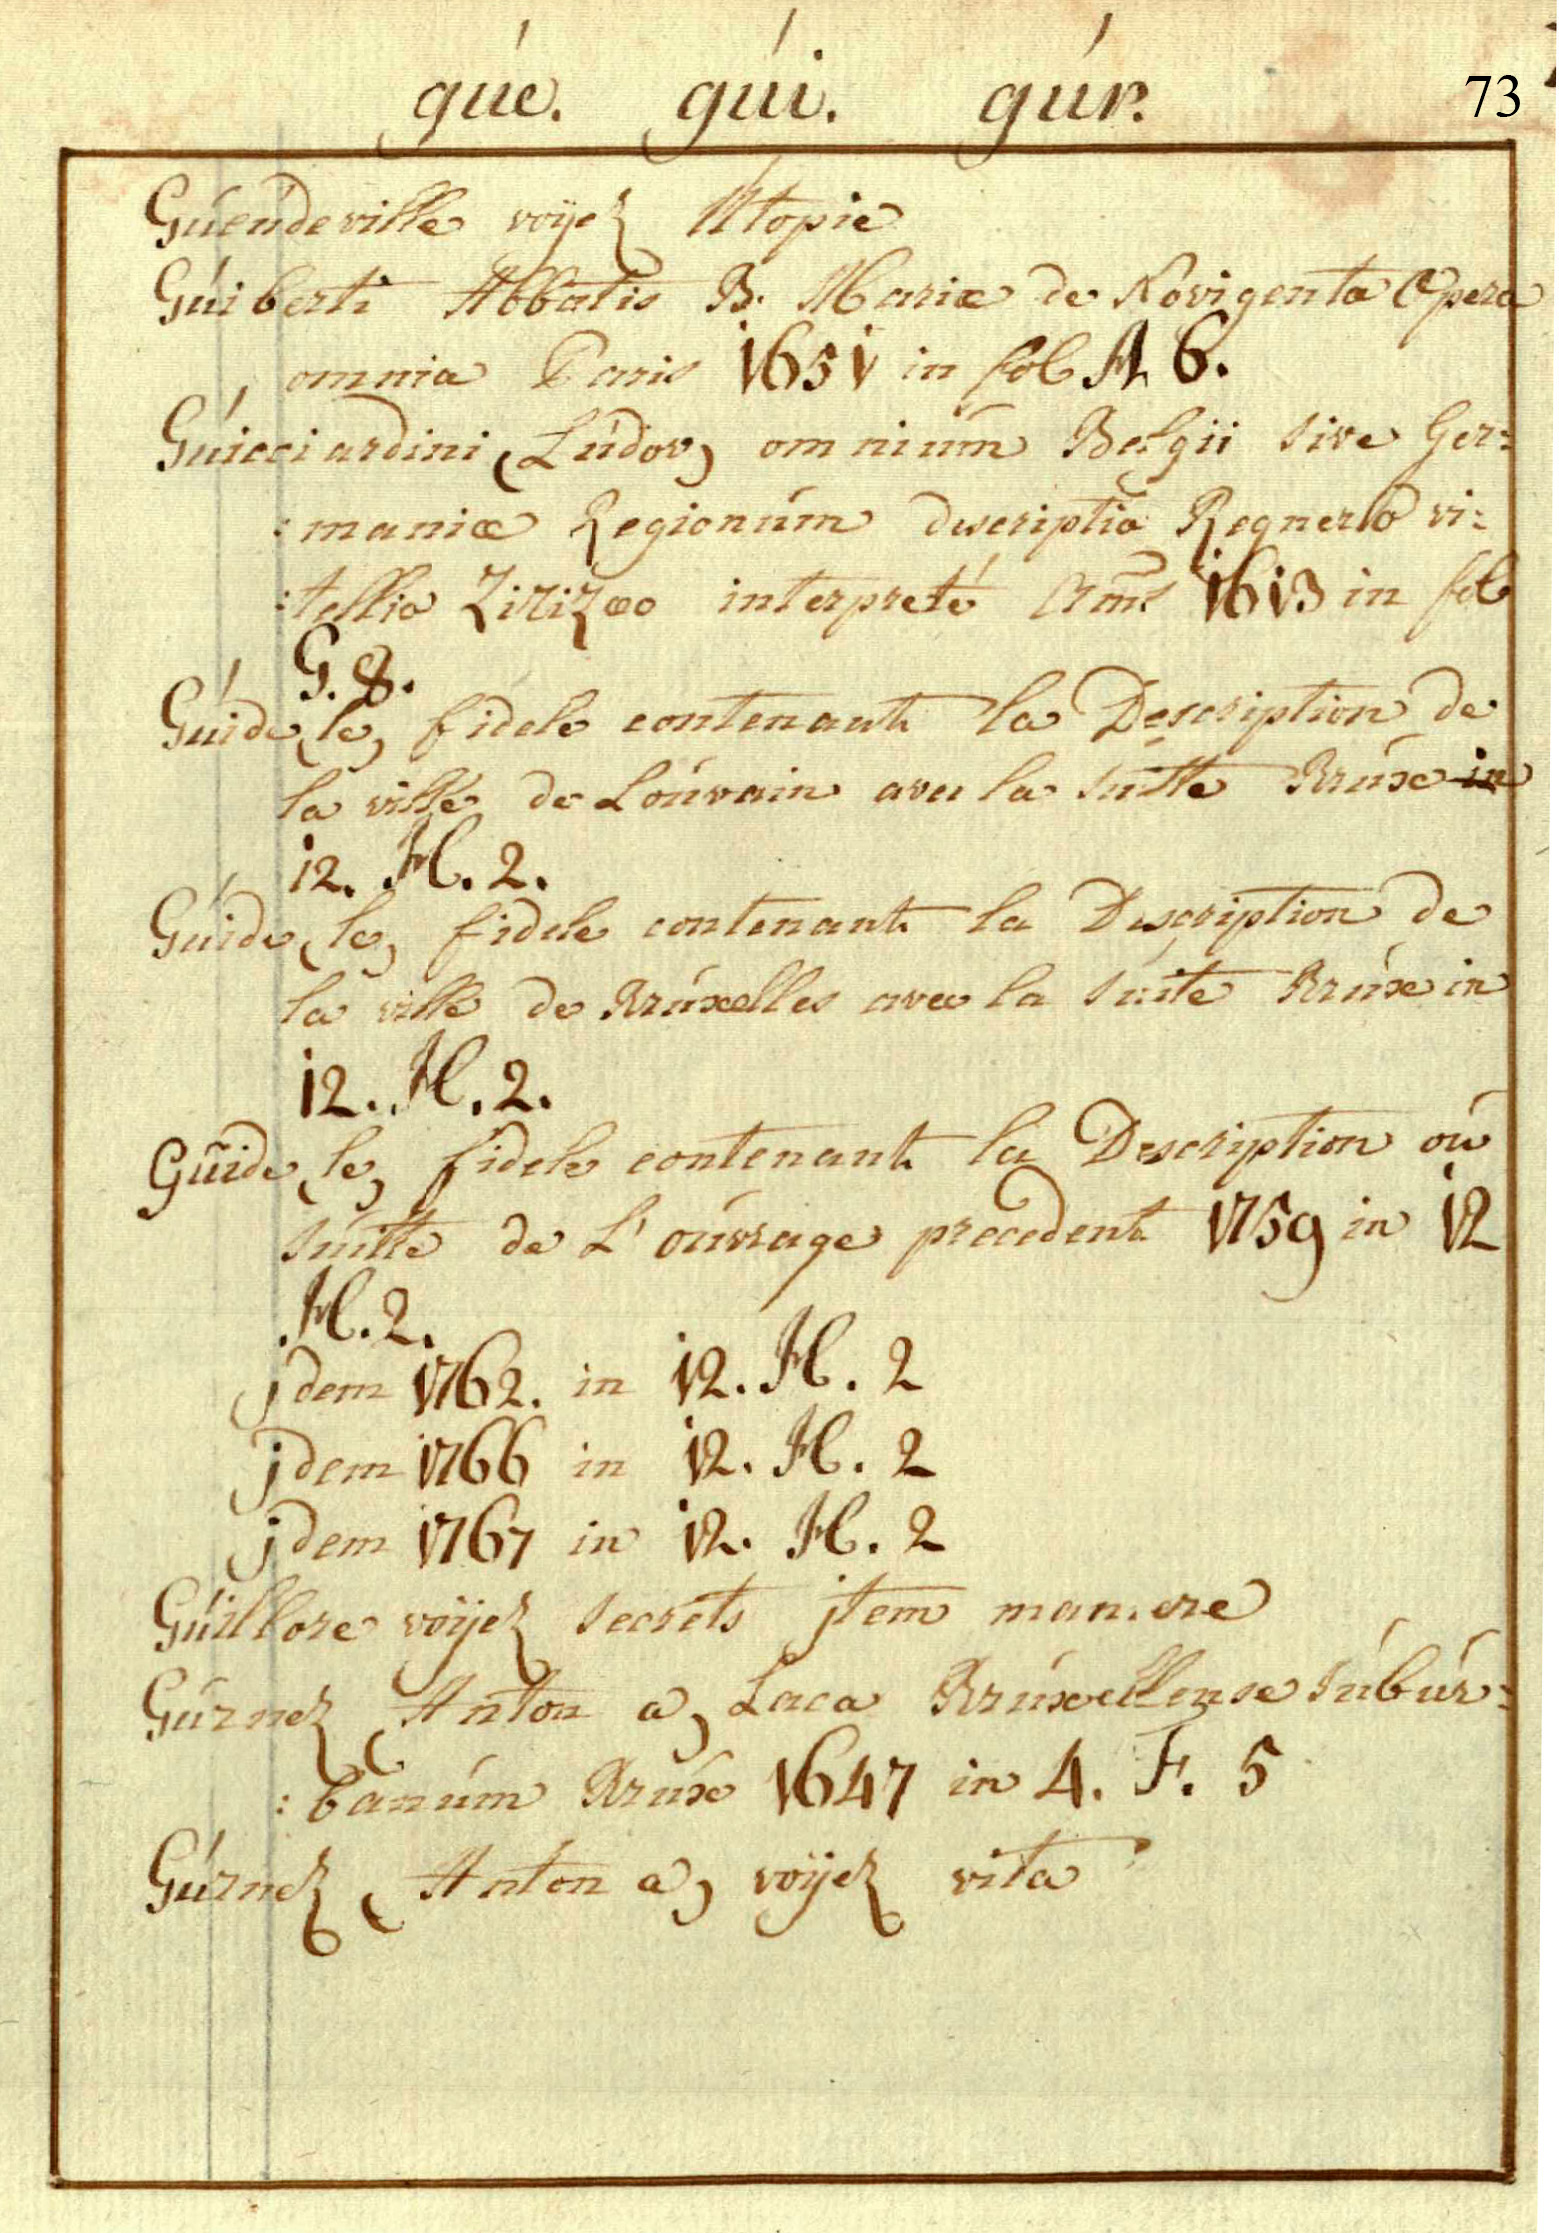 gúe. gúi. gúr. 73
Guéndeville voÿez Utopie
Gúiberti Abbatis B. Mariæ de Novigenta Opera
omnia Paris 1651 in fol A 6.
Gúicciardini (Lúdov) omniúm Belgii sive Ger=
:maniæ Regionúm descriptio Regnerio vi:
:tellio Zirizæo interpreté Ams 1613 in fol
G. 8.
Gúide (le) fidele contenant la Description de
la ville de Loúvain avec la súitte Brúx in
12. H. 2.
Gúide (le) fidele contenant la Description de
la ville de Brúxelles avec la súite Brúx in
12. H. 2.
Gúide (le) fidele contenant la Description oú
súitte de L'oúvrage precedent 1759 in 12
H. 2.
jdem 1762. in 12. H. 2
jdem 1766 in 12. H. 2
jdem 1767 in 12. H. 2
Gúillore voÿez secrets jtem maniere
Gúrnez (Anton a) Laca Brúxellense súbúr=
:banúm Brúx 1647 in 4. F. 5
Gúrnez (Anton a) voÿez vita